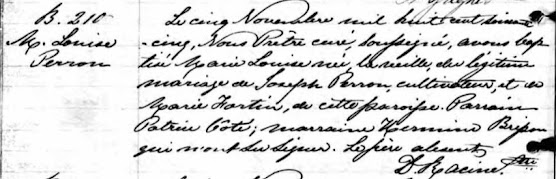 B. 210
M. Louise
Perron
Le cinq Novembre mil huit cent soixante
-cinq, Nous Prêtre curé, soussigné, avons bap
tisé Marie Louise née, la veille, du légitime
mariage de Joseph Perron, cultivateur, et de
Marie Fortin, de cette paroisse. Parrain
Patrice Côté; marraine Hermine Brisson
qui n'ont su signer. Le père absent
D. Racine. Ptre